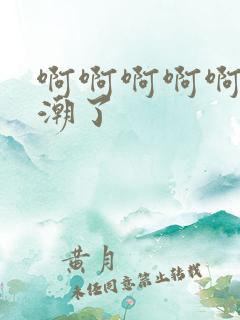 啊啊啊啊啊
潮了
黄月
未经同意禁止转载